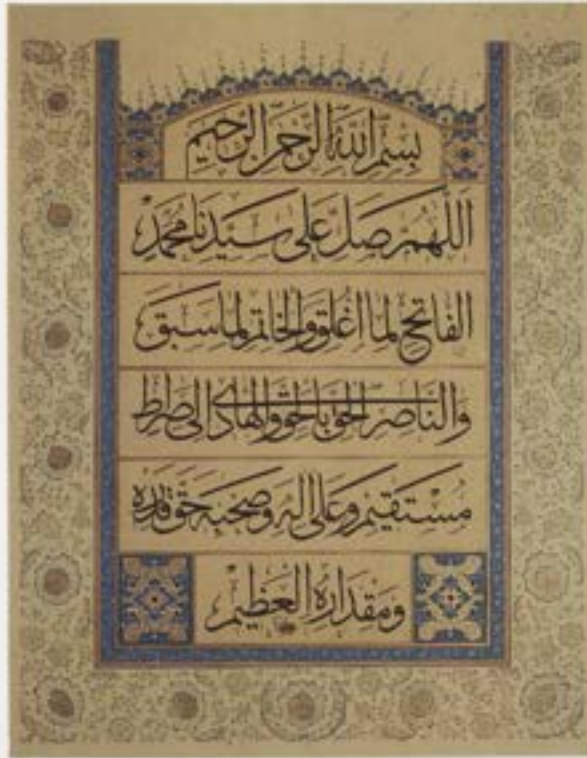 بِسْمِ اللهِ الرَّحْمٰنِ الرَّحِيمِ
اَللّٰهُمَّ صَلِّ عَلٰى سَيِّدِنَا مُحَمَّدٍ
الفَاتِحِ لِمَا اُغْلِقَ وَالخَاتِمِ لِمَا سَبَقَ
وَالنَّاصِرِ الحَقِّ بِالحَقِّ وَالهَادِي اِلٰى صِرَاطٍ
مُسْتَقِيمٍ وَعَلٰى اٰلِهِ وَصَحْبِهِ حَقَّ قَدْرِهِ
وَمِقْدَارِهِ العَظِيمِ